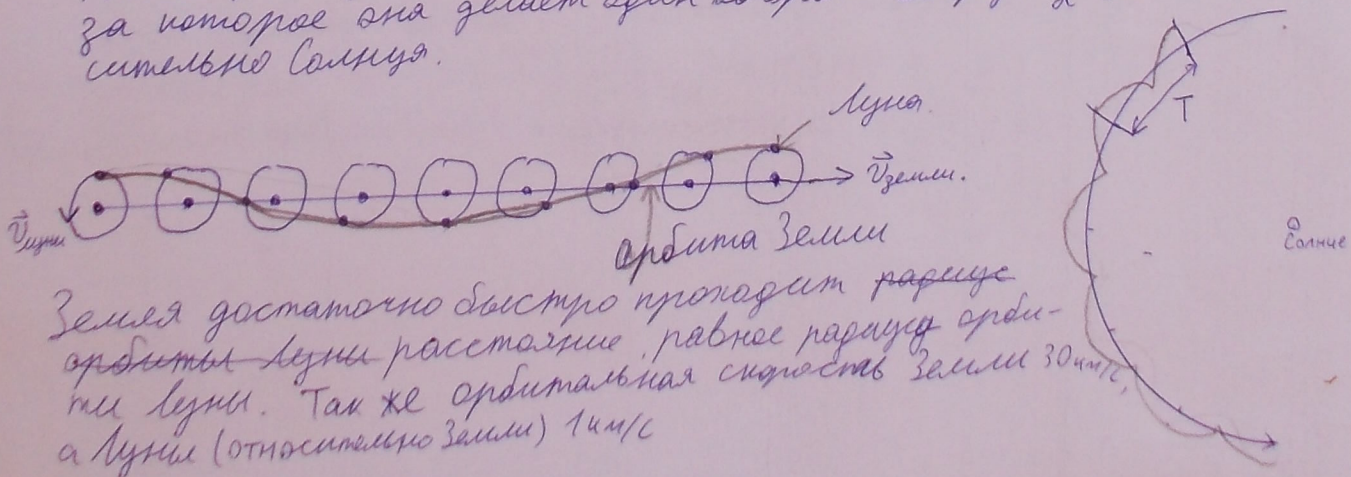 за которое она делает один
сительно Солнца.
Луна.
T
v⃗земли.
v⃗луны
Солнце
орбита Земли
Земля достаточно быстро проходит радиус
орбиты Луны расстояние, равное радиусу орби-
ты Луны. Так же орбитальная скорость Земли 30 км/с,
а Луны (относительно Земли) 1 км/с